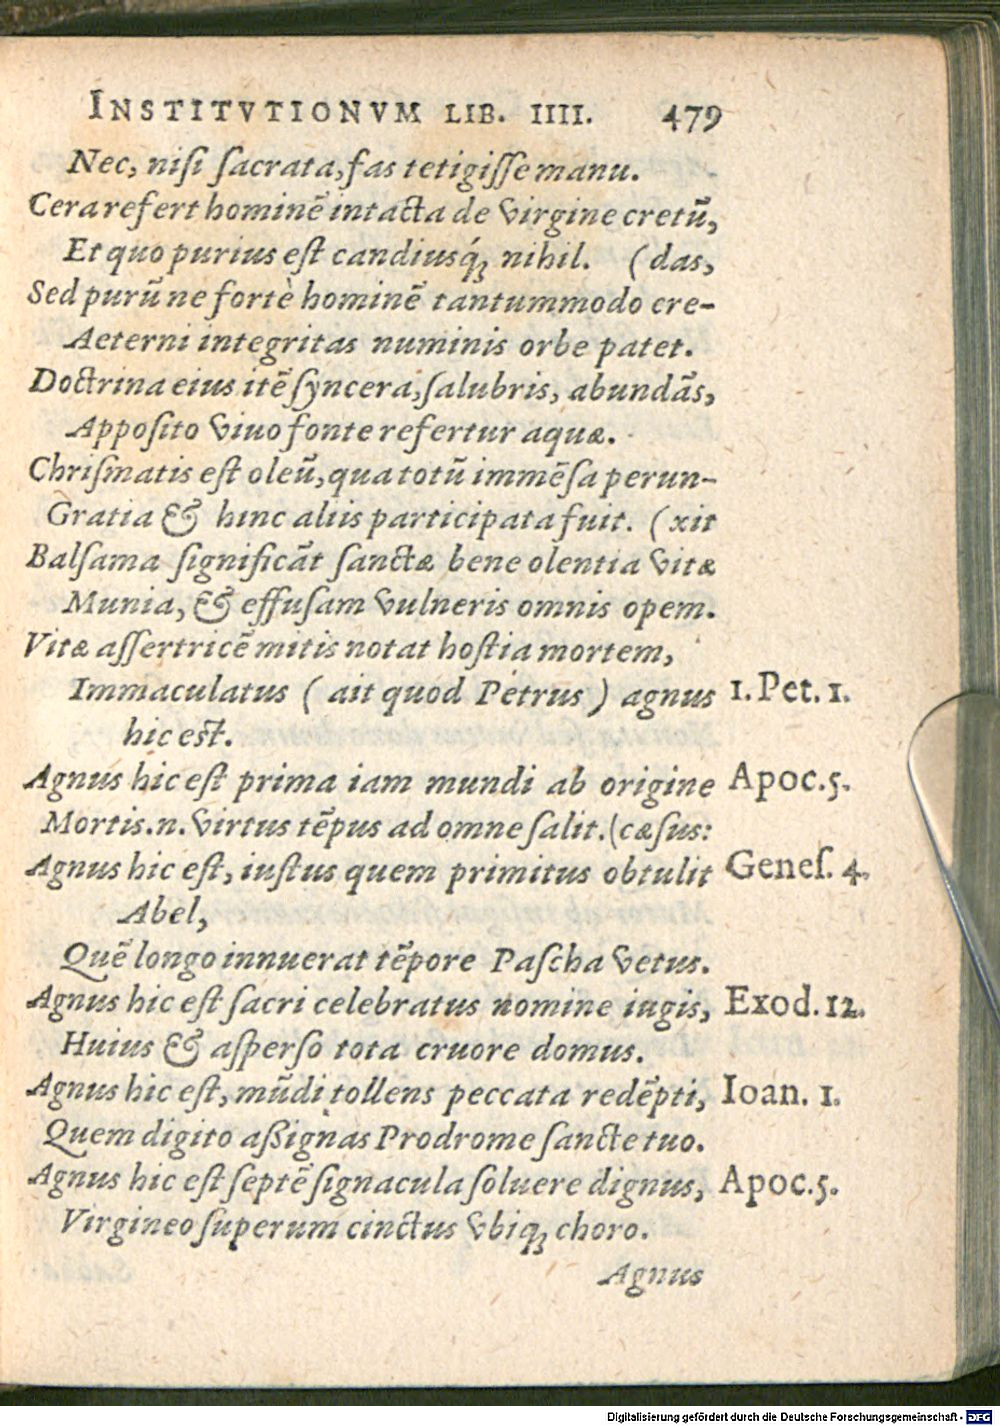 INSTITVTIONVM LIB. IIII. 479
Nec, nisi sacrata, fas tetigisse manu.
Cera refert hominē intacta de virgine cretū,
Et quo purius est candiusq́ꝫ nihil. (das,
Sed purū ne fortè hominē tantummodo cre-
Aeterni integritas numinis orbe patet.
Doctrina eius itē syncera, salubris, abundās,
Apposito viuo fonte refertur aquæ.
Chrismatis est oleū, qua totū immēsa perun-
Gratia & hinc aliis participata fuit. (xit
Balsama significāt sanctæ bene olentia vitæ
Munia, & effusam vulneris omnis opem.
Vitæ assertricē mitis notat hostia mortem,
Immaculatus ( ait quod Petrus ) agnus 1. Pet. 1.
hic est.
Agnus hic est prima iam mundi ab origine Apoc. 5.
Mortis .n. virtus tēpus ad omne salit. (cæsus:
Agnus hic est, iustus quem primitus obtulit Genes. 4.
Abel,
Quē longo innuerat tēpore Pascha vetus.
Agnus hic est sacri celebratus nomine iugis, Exod. 12.
Huius & asperso tota cruore domus.
Agnus hic est, mūdi tollens peccata redēpti, Ioan. 1.
Quem digito aßignas Prodrome sancte tuo.
Agnus hic est septē signacula soluere dignus, Apoc. 5.
Virgineo superum cinctus vbiqꝫ choro.
Agnus
Digitalisierung gefördert durch die Deutsche Forschungsgemeinschaft - DFG